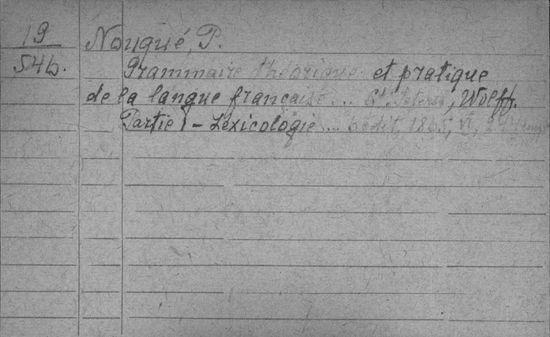 19
54b.
Nougué, P.
Grammaire théorique et pratique
de la langue française... St. Petersb., Wolff.
Partie I - Lexicologie... édit, 1865, VI,